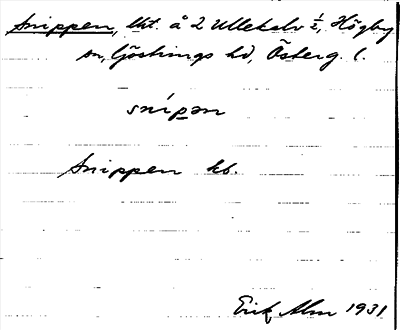 Snippen, lht. å 2 Ullekalv ½, Högby
sn, Göstrings hd, Österg. l.
snípən
Snippen kb.
Erik Alm 1931